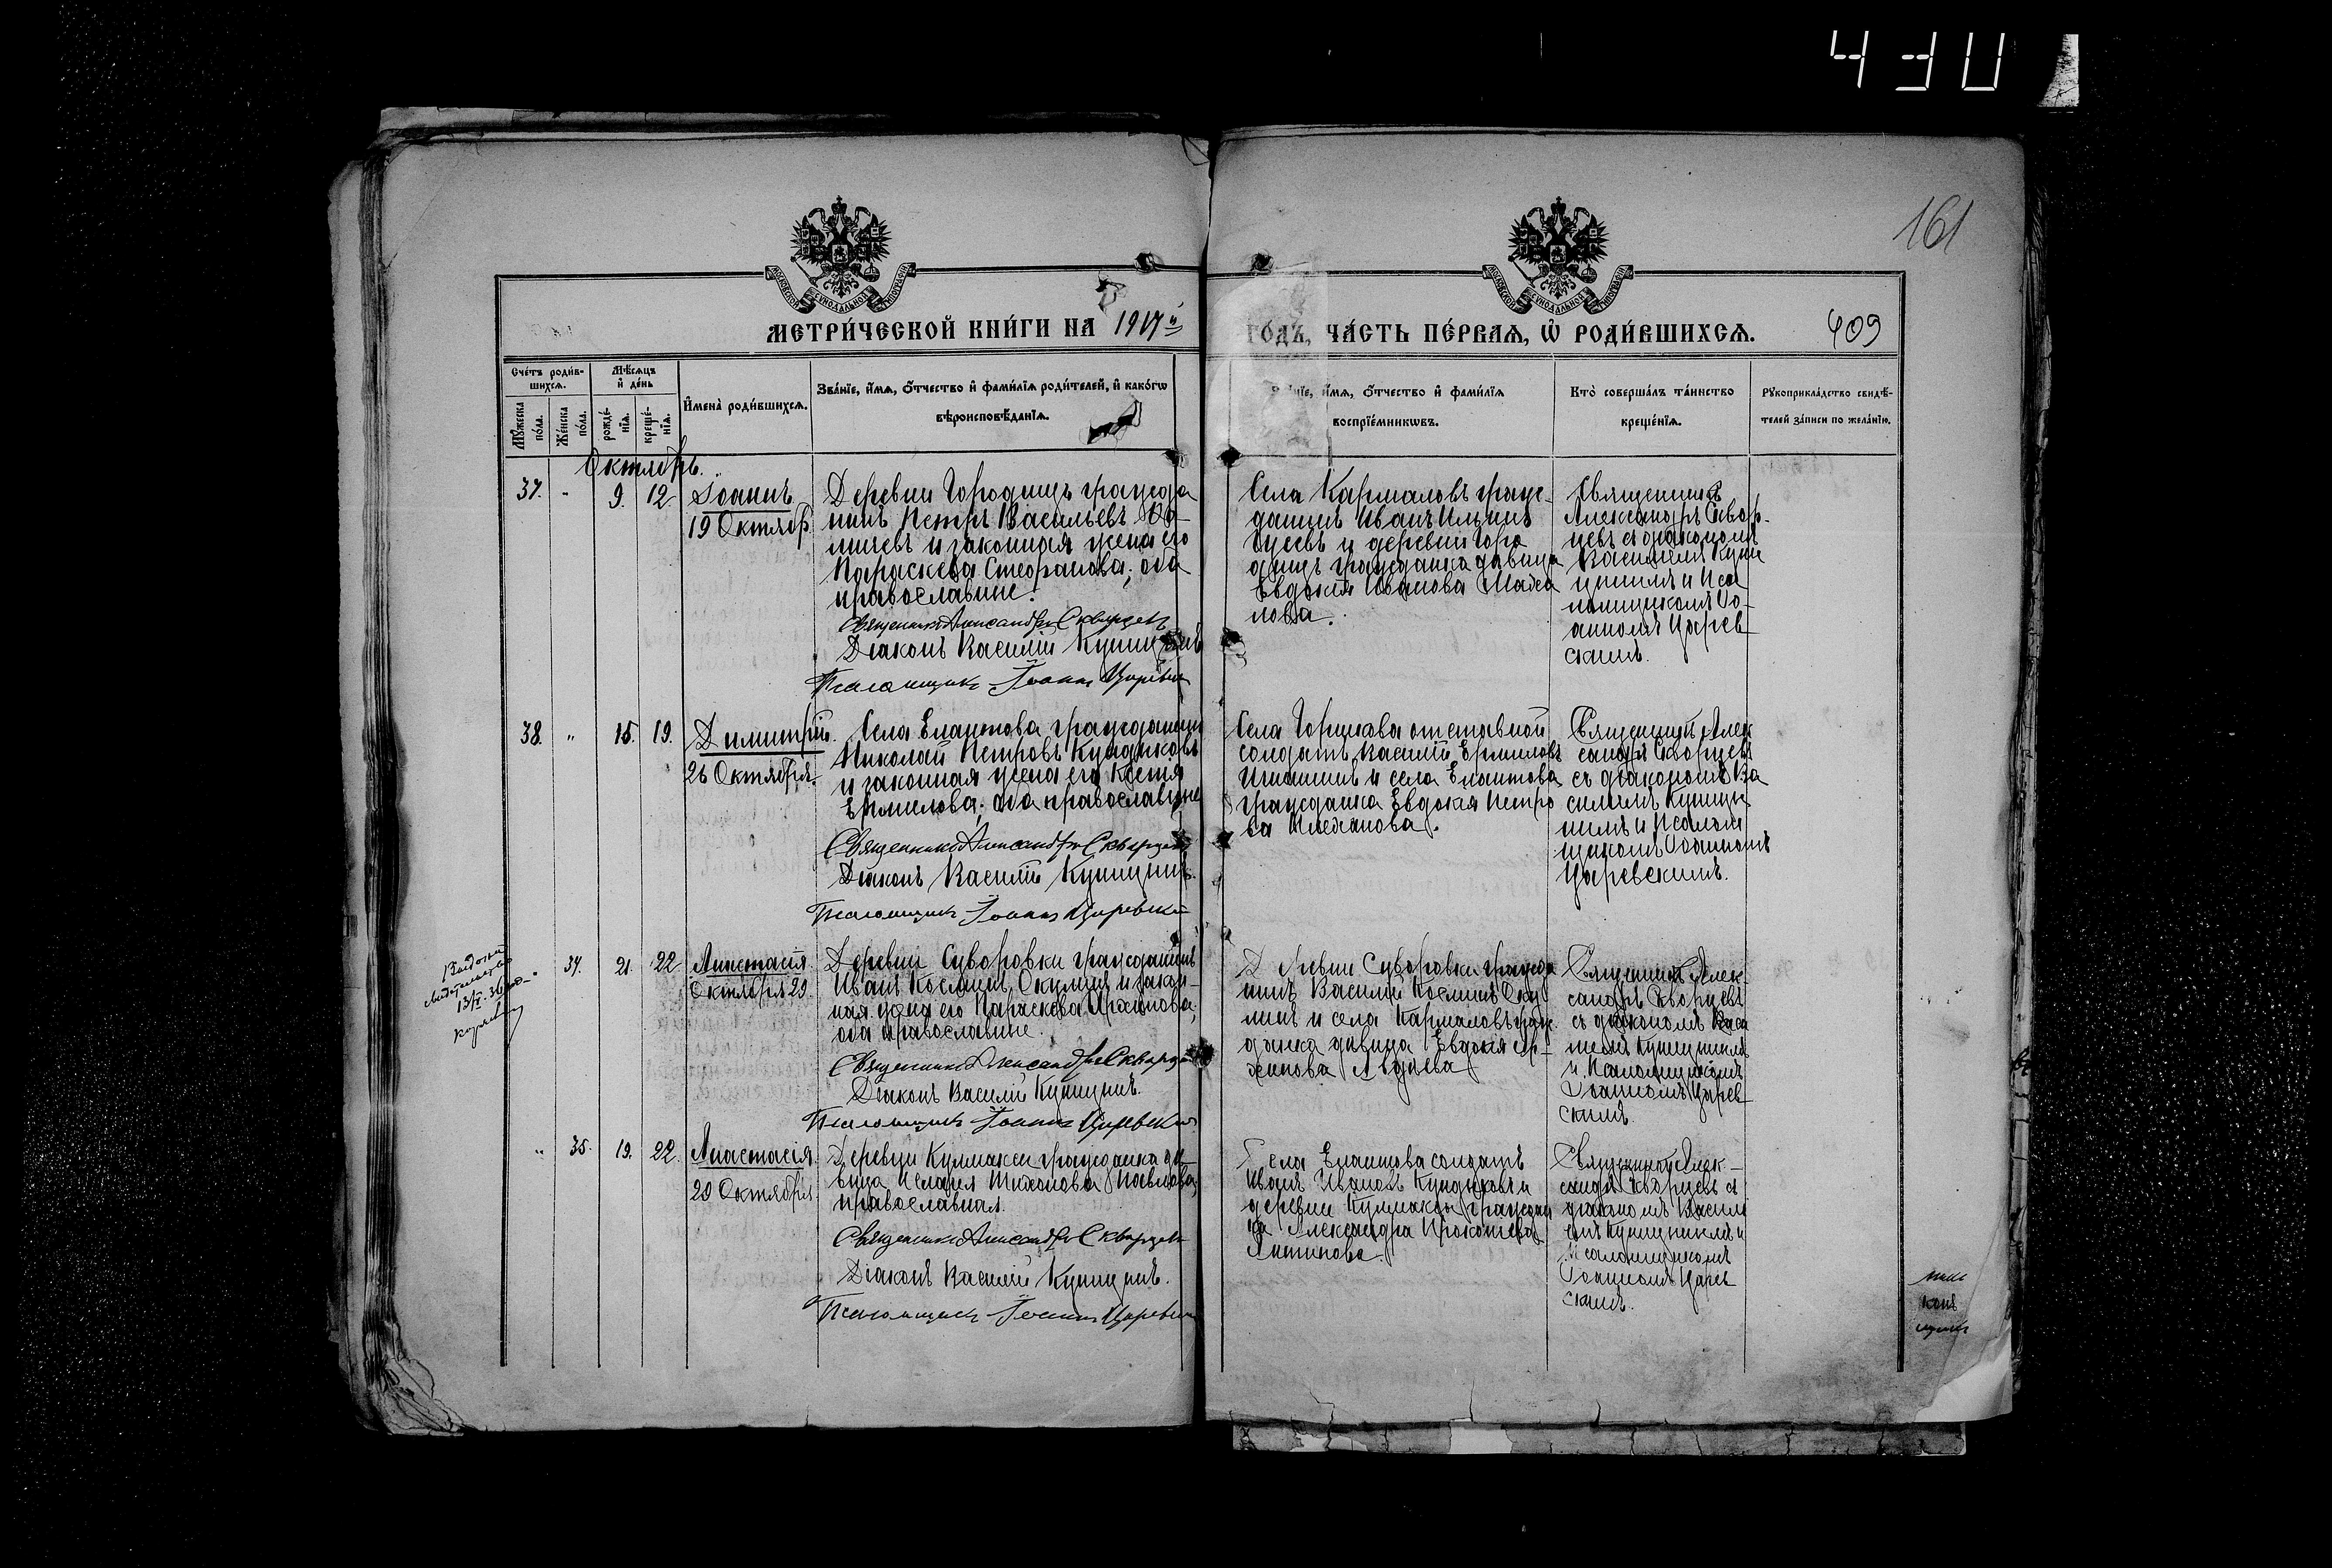 430
161
МОСКОВСКОЙ СѴНОДАЛЬНОЙ ТИПОГРАФІИ
МОСКОВСКОЙ СѴНОДАЛЬНОЙ ТИПОГРАФІИ
МЕТРИ́ЧЕСКОЙ КНИ́ГИ НА 1917й ГО́ДЪ, ЧА́СТЬ ПЕ́РВАѦ, Ѽ РОДИ́ВШИХСѦ.
409
Сче́тъ роди́в-
шихсѧ.
Мѣ́сѧцъ
и҆ де́нь
Мꙋ́жеска
по́ла.
Же́нска
по́ла.
рожде́-
нїѧ.
креще́-
нїѧ.
И҆мена̀ роди́вшихсѧ.
Зва́нїе, и҆́мѧ, ѻ҆́тчество и҆ фами́лїѧ роди́телей, и҆ како́гѡ
вѣроисповѣ́данїѧ.
и҆́мѧ, ѻ҆́тчество и҆ фами́лїѧ
воспрїе́мникѡвъ.
Кто̀ соверша́лъ та́инство
креще́нїѧ.
Рꙋкоприкла́дство свидѣ́-
телей за́писи по жела́нїю.
Октябрь.
37. " 9. 12
Іоаннъ
19 Октябр.
Деревни Городищъ гражда
нинъ Петръ Васильевъ
и законная жена его
Параскева Стефанова; оба
православные.
Священникъ Александръ Скворцевъ
Діаконъ Василій Куницынъ
Псаломщикъ Іоаннъ Царевскій
Села Кармаловъ граж-
данинъ Иванъ Ильинъ
и деревни Горо
дищъ гражданка дѣвица
Евдокія Иванова
Священникъ
Александръ Сквор-
цевъ съ діакономъ
Василіемъ Куни
цинымъ и Пса
ломщикомъ Іо-
анномъ Царев-
скимъ.
38. " 15. 19.
Димитрій.
26 Октября.
Села Елаитова гражданинъ
Николай Петровъ Кундюковъ
и законная жена его Ксенія
Ермилова; оба православные
Священникъ Александръ Скворцевъ
Діаконъ Василій Куницынъ.
Псаломщикъ Іоаннъ Царевскій
отставной
солдатъ Василій Ермиловъ
и села Елаитова
гражданка Евдокія Петро
ва Плеханова.
Священникъ Алек
сандръ Скворцевъ
съ діакономъ Ва
силіемъ Куницы
нымъ и Псалом
щикомъ Іоанномъ
Царевскимъ.
34. 21. 22
Анастасія.
Октября 29.
Деревни Суворовки гражданинъ
Иванъ Косминъ Скулинъ и закон-
ная жена его Параскева
оба православные.
Священникъ Александръ Скворцевъ
Діаконъ Василій Куницынъ.
Псаломщикъ Іоаннъ Царевскій
Деревни Суворовки гражда
нинъ Василій Косминъ Ску
линъ и села Кармаловъ граж.
данка дѣвица Евдокія Ар-
хипова Авдѣева
Священникъ Алек-
сандръ Скворцевъ
съ діакономъ Васи
ліемъ Куницынымъ
и Псаломщикомъ
Іоанномъ Царев-
скимъ.
" 35. 19. 22.
Анастасія.
29 Октября.
Деревни Кулмаксы гражданка дѣ-
вица Пелагея Тихонова Павлова,
православная.
Священникъ Александръ Скворцевъ
Діаконъ Василій Куницынъ.
Псаломщикъ Іоаннъ Царевскій
Села Елаитова солдатъ
Иванъ Ивановъ Кундюковъ и
деревни Кулмаксы граждан
ка Александра Прокопьева
Антипова.
Священникъ Алек-
сандръ Скворцевъ съ
діакономъ Васил
іемъ Куницынымъ и
Псаломщикомъ
Іоанномъ Царев
скимъ.